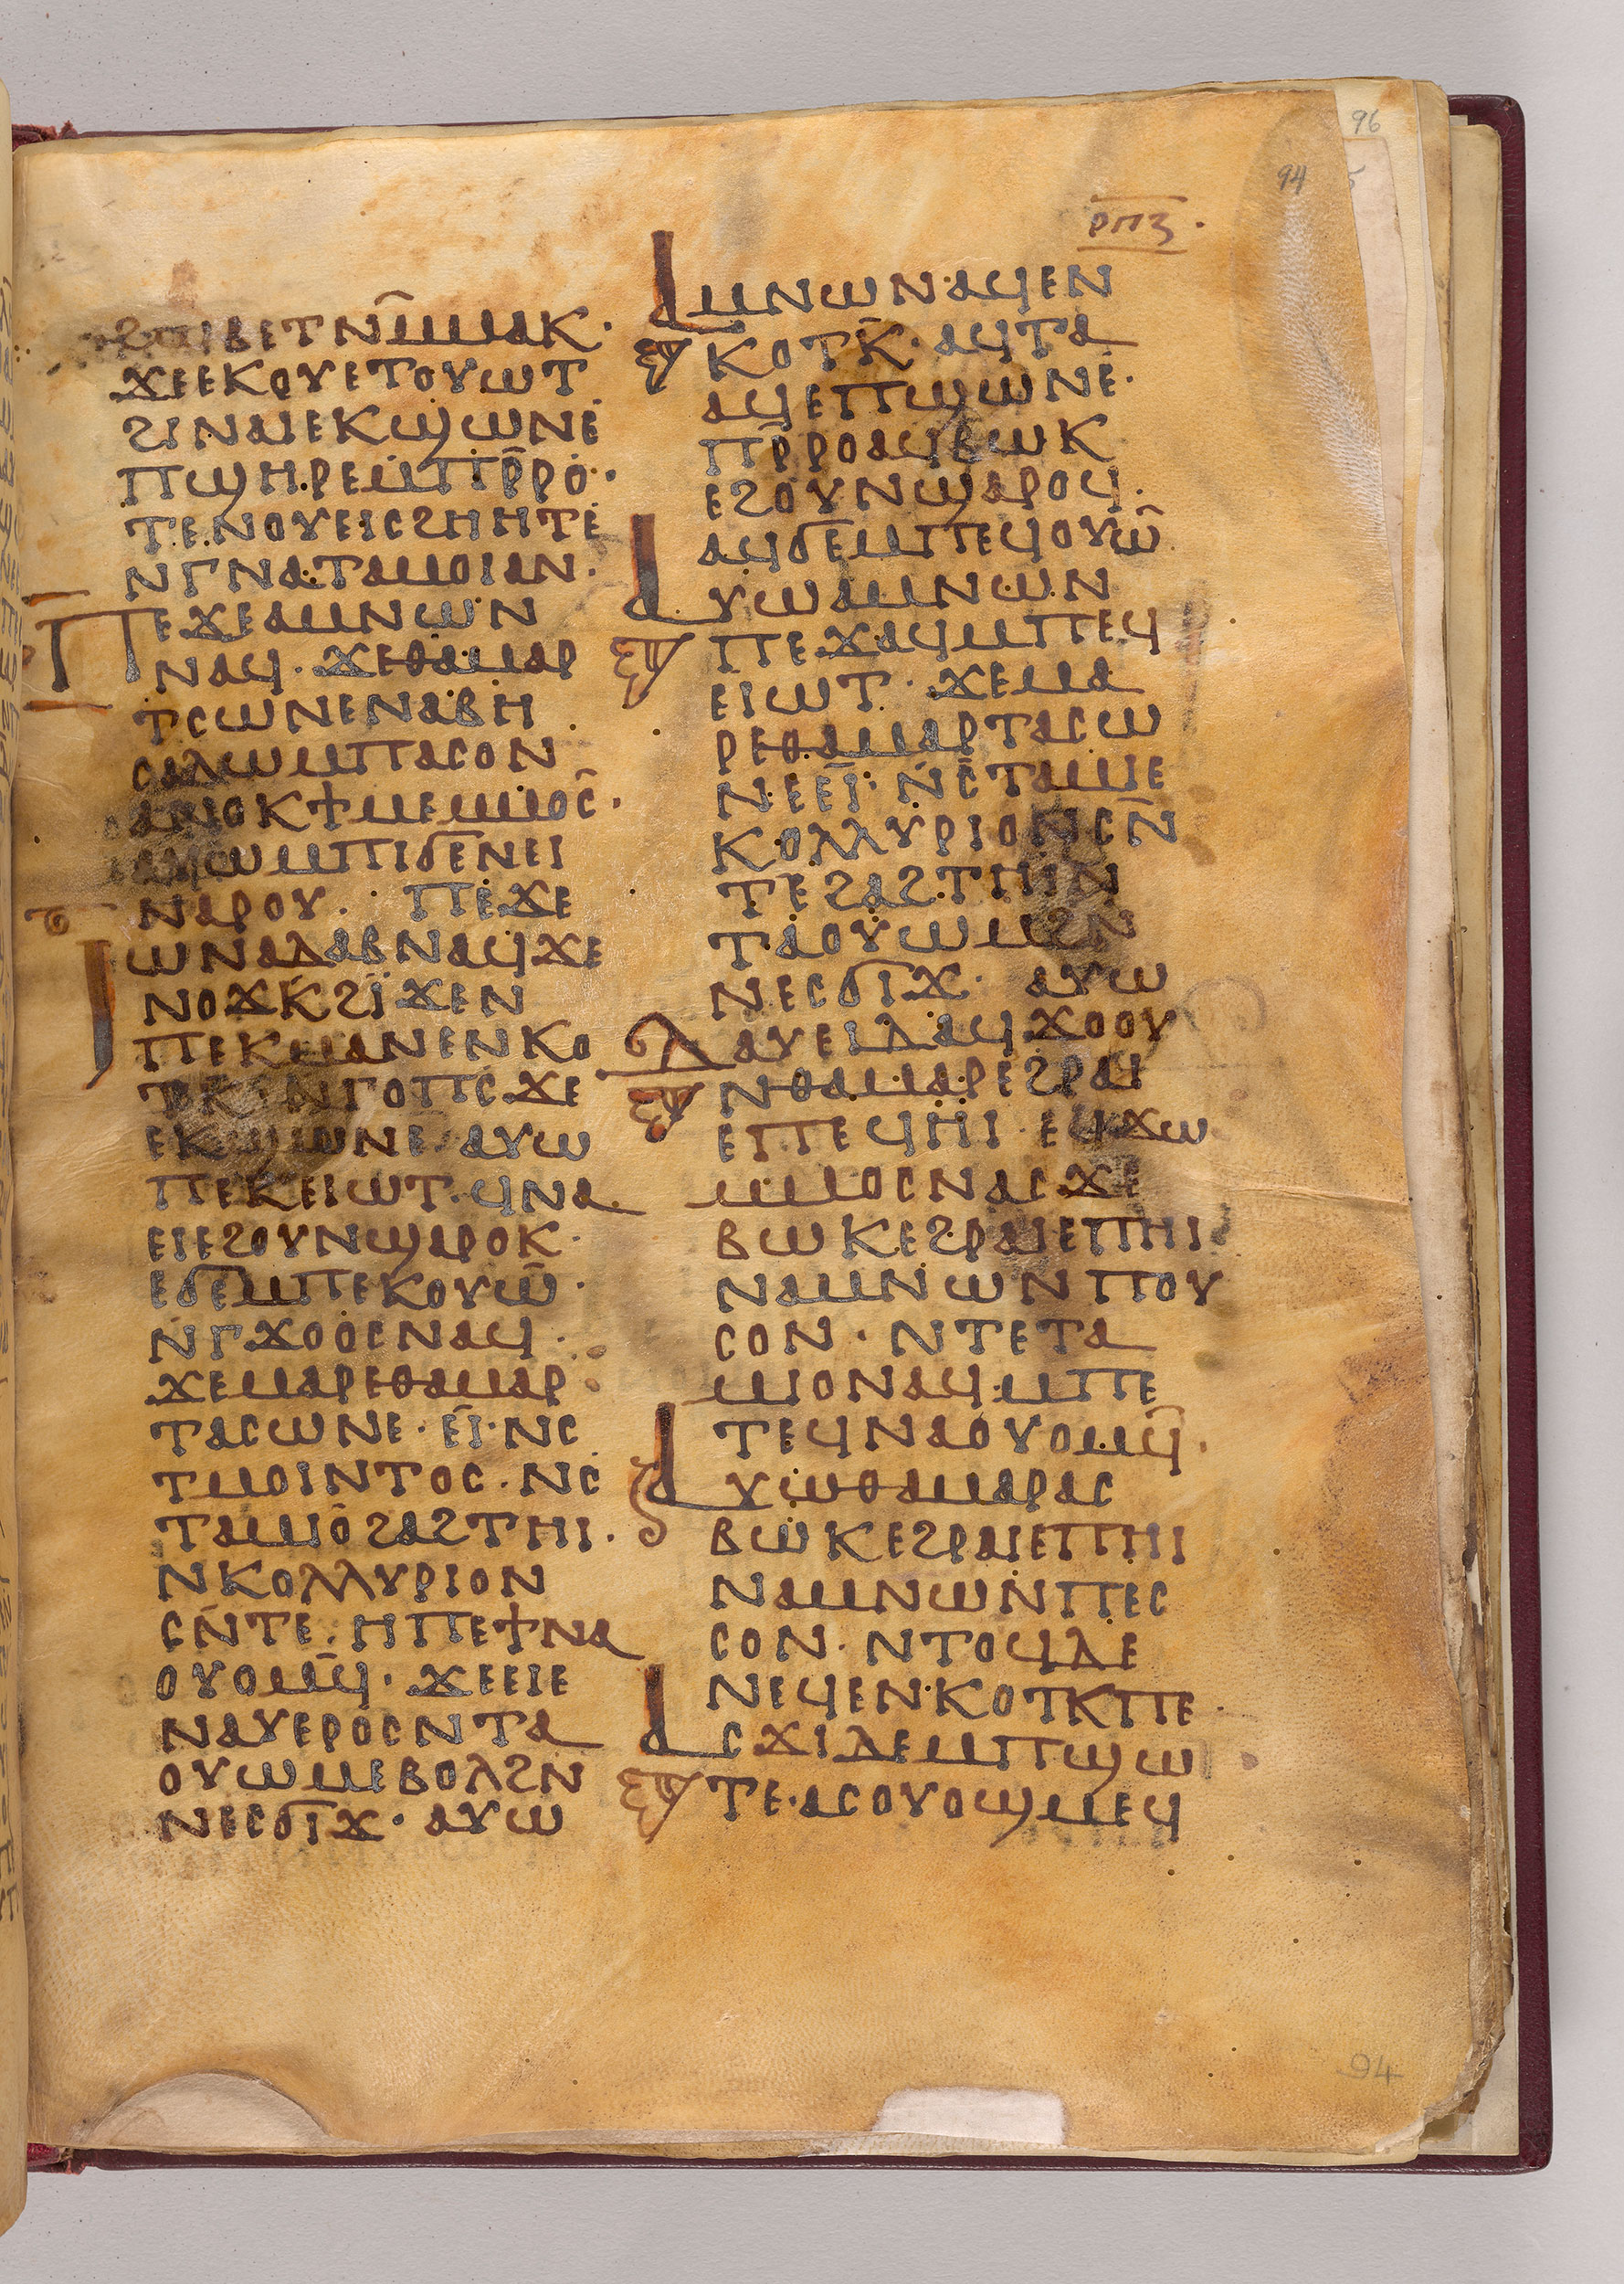 96
94
ⲣⲡⲍ·
ⲡⲉⲧⲛ̄ⲙⲙⲁⲕ·
ϫⲉⲉⲕⲟⲩⲉⲧⲟⲩⲱⲧ
ϩⲓⲛⲁⲓⲉⲕϣⲱⲛⲉ
ⲡϣⲏⲣⲉⲙⲡⲣ̄ⲣⲟ·
ⲧⲉⲛⲟⲩⲉⲓⲥϩⲏⲏⲧⲉ
ⲛⲅⲛⲁⲧⲁⲙⲟⲓⲁⲛ·
ⲡⲉϫⲉⲁⲙⲛⲱⲛ
ⲛⲁϥ·ϫⲉⲑⲁⲙⲁⲣ
ⲧⲥⲱⲛⲉⲛⲁⲃⲏ
ⲥⲁⲗⲱⲙⲡⲁⲥⲟⲛ
ⲁⲛⲟⲕϯⲙⲉⲙⲙⲟⲥ·
ⲁⲩⲱⲙⲡⲓϭⲉⲛⲉⲓ
ⲛⲁⲣⲟⲩ· ⲡⲉϫⲉ
ⲓⲱⲛⲁⲇⲁⲃⲛⲁϥϫⲉ
ⲛⲟϫⲕϩⲓϫⲉⲛ
ⲡⲉⲕⲙⲁⲛⲉⲛⲕⲟ
ⲧⲕ·ⲛⲅⲟⲡⲥϫⲉ
ⲉⲕϣⲱⲛⲉ·ⲁⲩⲱ
ⲡⲉⲕⲉⲓⲱⲧ·ϥⲛⲁ
ⲉⲓⲉϩⲟⲩⲛϣⲁⲣⲟⲕ·
ⲉϭⲉⲙⲡⲉⲕⲟⲩⲱ̄·
ⲛⲅϫⲟⲟⲥⲛⲁϥ·
ϫⲉⲙⲁⲣⲉⲑⲁⲙⲁⲣ
ⲧⲁⲥⲱⲛⲉ·ⲉⲓ·ⲛⲥ
ⲧⲙⲟⲓⲛⲧⲟⲥ·ⲛⲥ
ⲧⲁⲙⲓⲟϩⲁϩⲧⲏⲓ·
ⲛⲕⲟⲗⲗⲩⲣⲓⲟⲛ
ⲥⲛⲧⲉ·ⲏⲡⲉϯⲛⲁ
ⲟⲩⲟⲙϥ̄·ϫⲉⲉⲓⲉ
ⲛⲁⲩⲉⲣⲟⲥⲛⲧⲁ
ⲟⲩⲱⲙⲉⲃⲟⲗϩⲛ
ⲛⲉⲥϭⲓϫ·ⲁⲩⲱ
ⲁⲙⲛⲱⲛ·ⲁϥⲉⲛ
ⲕⲟⲧⲕ·ⲁϥⲧⲁ
ⲁϥⲉⲡϣⲱⲛⲉ·
ⲡⲣ̄ⲣⲟⲁϥⲃⲱⲕ
ⲉϩⲟⲩⲛϣⲁⲣⲟϥ·
ⲁϥϭⲉⲙⲡⲉϥⲟⲩⲱ̄
ⲁⲩⲱⲁⲙⲛⲱⲛ
ⲡⲉϫⲁϥⲙⲡⲉϥ
ⲉⲓⲱⲧ·ϫⲉⲙⲁ
ⲣⲉⲑⲁⲙⲁⲣⲧⲁⲥⲱ
ⲛⲉⲉⲓ·ⲛⲥⲧⲁⲙⲓⲉ
ⲕⲟⲗⲗⲩⲣⲓⲟⲛⲥⲛ̄
ⲧⲉϩⲁϩⲧⲏⲓⲛ
ⲧⲁⲟⲩⲱⲙϩⲛ
ⲛⲉⲥϭⲓϫ· ⲁⲩⲱ
ⲇⲁⲩⲉⲓⲇⲁϥϫⲟⲟⲩ
ⲛⲑⲁⲙⲁⲣⲉϩⲣⲁⲓ
ⲉⲡⲉϥⲏⲓ·ⲉϥϫⲱ
ⲙⲙⲟⲥⲛⲁⲥϫⲉ
ⲃⲱⲕⲉϩⲣⲁⲓⲉⲡⲏⲓ
ⲛⲁⲙⲛⲱⲛⲡⲟⲩ
ⲥⲟⲛ·ⲛⲧⲉⲧⲁ
ⲙⲓⲟⲛⲁϥⲙⲡⲉ
ⲧⲉϥⲛⲁⲟⲩⲟⲙϥ̄·
ⲁⲩⲱⲑⲁⲙⲁⲣⲁⲥ
ⲃⲱⲕⲉϩⲣⲁⲓⲉⲡⲏⲓ
ⲛⲁⲙⲛⲱⲛⲡⲉⲥ
ⲥⲟⲛ·ⲛⲧⲟϥⲇⲉ
ⲛⲉϥⲉⲛⲕⲟⲧⲕⲡⲉ·
ⲁⲥϫⲓⲇⲉⲙⲡϣⲱ
ⲧⲉ·ⲁⲥⲟⲩⲟϣⲙⲉϥ
94